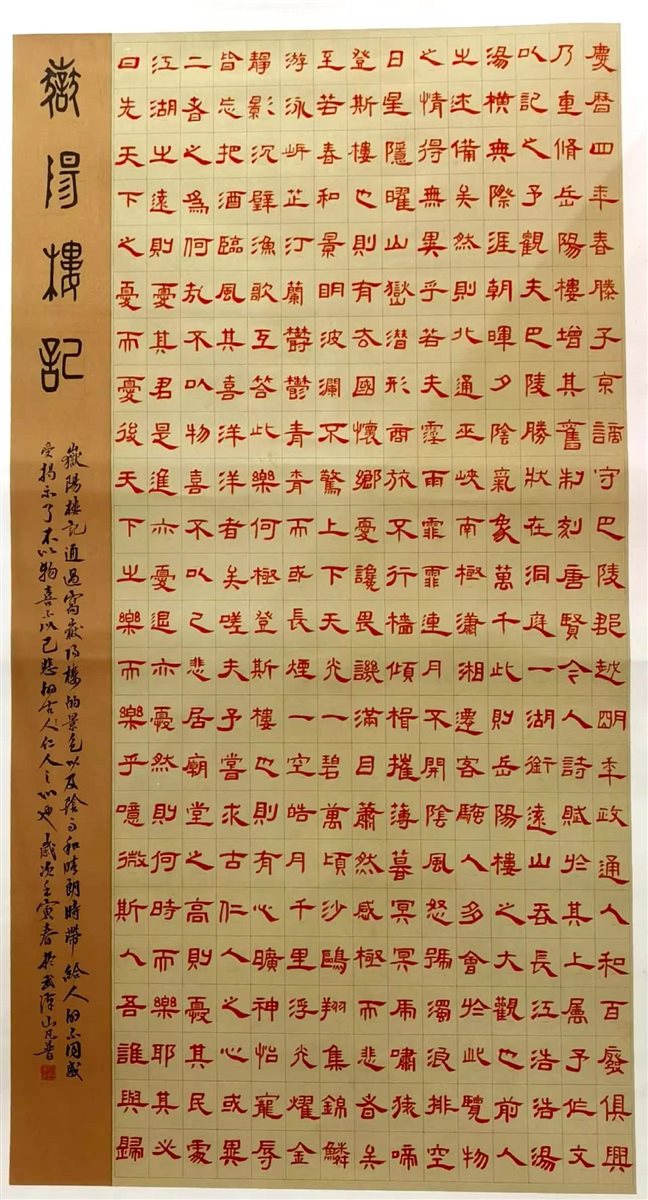 慶曆四年春滕子京謫守巴陵郡越明年政通人和百廢俱興
乃重脩岳陽樓增其舊制刻唐賢令人詩賦於其上屬予作文
以記之予觀夫巴陵勝狀在洞庭一湖銜遠山吞長江浩浩湯
湯橫無際涯朝暉夕陰氣象萬千此則岳陽樓之大觀也前人
之述備矣然則北通巫峽南極瀟湘遷客騷人多會於此覽物
之情得無異乎若夫霪雨霏霏連月不開陰風怒號濁浪排空
日星隱曜山嶽潛形商旅不行檣傾楫摧薄暮冥冥虎嘯猿啼
登斯樓也則有去國懷鄉憂讒畏譏滿目蕭然感極而悲者矣
至若春和景明波瀾不驚上下天光一碧萬頃沙鷗翔集錦鱗
游泳岸芷汀蘭鬱鬱青青而或長煙一空皓月千里浮光耀金
靜影沉璧漁歌互答此樂何極登斯樓也則有心曠神怡寵辱
皆忘把酒臨風其喜洋洋者矣嗟夫予嘗求古仁人之心或異
二者之爲何哉不以物喜不以己悲居廟堂之高則憂其民處
江湖之遠則憂其君是進亦憂退亦憂然則何時而樂耶其必
曰先天下之憂而憂後天下之樂而樂乎噫微斯人吾誰與歸
嶽陽樓記
嶽陽樓記通過寫嶽陽樓的景色以及陰雨和晴朗時帶給人的不同感
受揭示了不以物喜不以己悲的古人仁人之心也歲次壬寅春於武漢山凡普